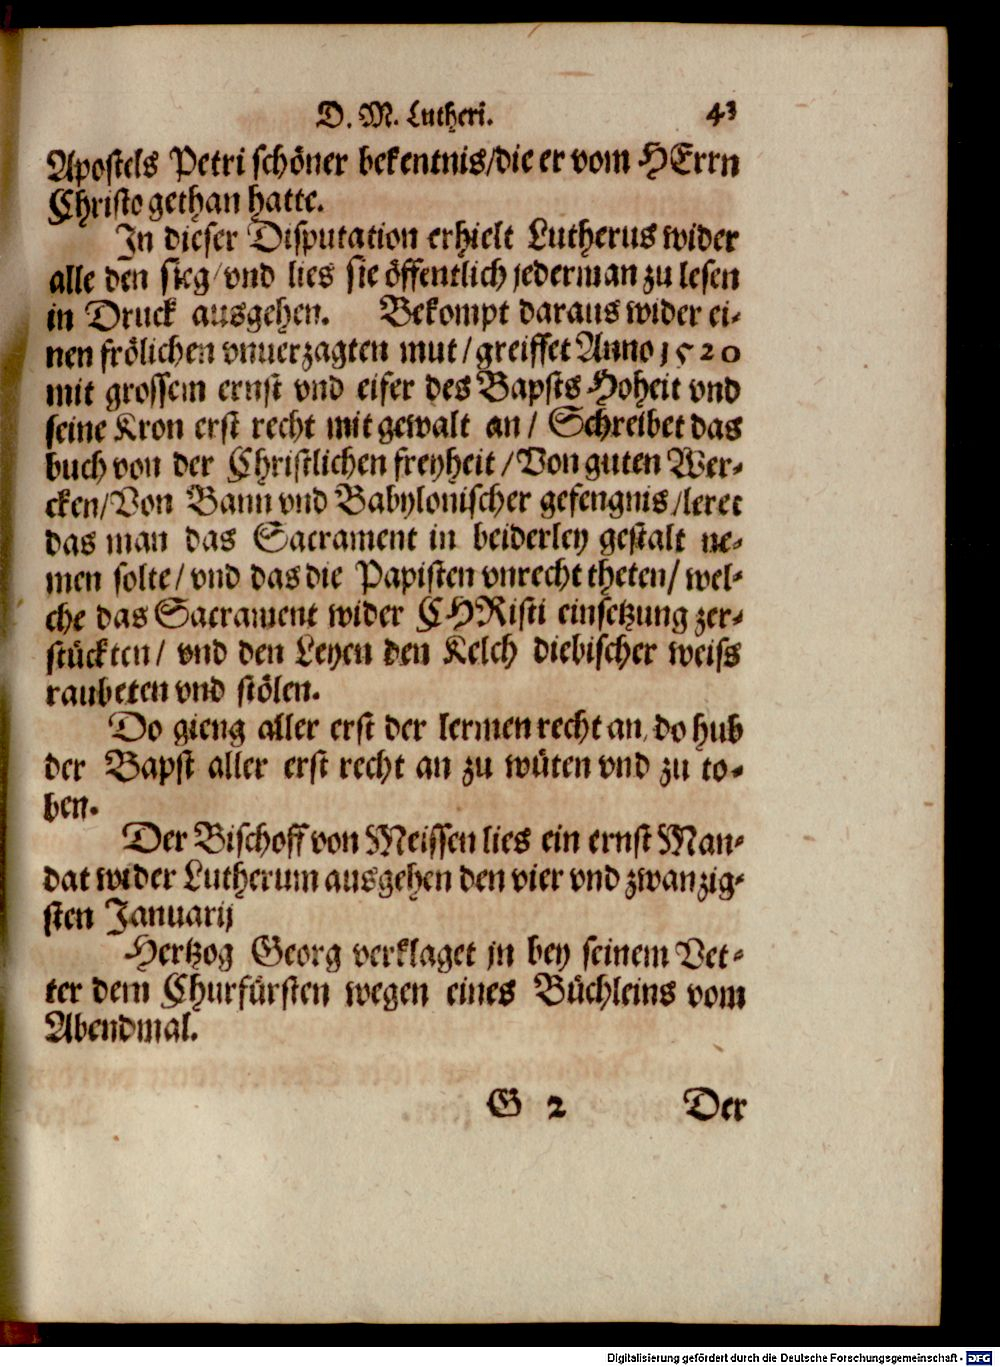 D. M. Lutheri. 43
Apostels Petri schöner bekentnis/die er vom HErrn
Christo gethan hatte.
In dieser Disputation erhielt Lutherus wider
alle den sieg/vnd lies sie öffentlich jederman zu lesen
in Druck ausgehen. Bekompt daraus wider ei-
nen frölichen vnuerzagten mut/greiffet Anno 1520
mit grossem ernst vnd eifer des Bapsts Hoheit vnd
seine Kron erst recht mit gewalt an/ Schreibet das
buch von der Christlichen freyheit/Von guten Wer-
cken/Von Bann vnd Babylonischer gefengnis/leret
das man das Sacrament in beiderley gestalt ne-
men solte/vnd das die Papisten vnrecht theten/wel-
che das Sacrament wider CHRisti einsetzung zer-
stückten/ vnd den Leyen den Kelch diebischer weiss
raubeten vnd stölen.
Do gieng aller erst der lermen recht an, do hub
der Bapst aller erst recht an zu wüten vnd zu to-
ben.
Der Bischoff von Meissen lies ein ernst Man-
dat wider Lutherum ausgehen den vier vnd zwanzig-
sten Januarij
Hertzog Georg verklaget jn bey seinem Vet-
ter dem Churfürsten wegen eines Büchleins vom
Abendmal.
G 2 Der
Digitalisierung gefördert durch die Deutsche Forschungsgemeinschaft - DFG